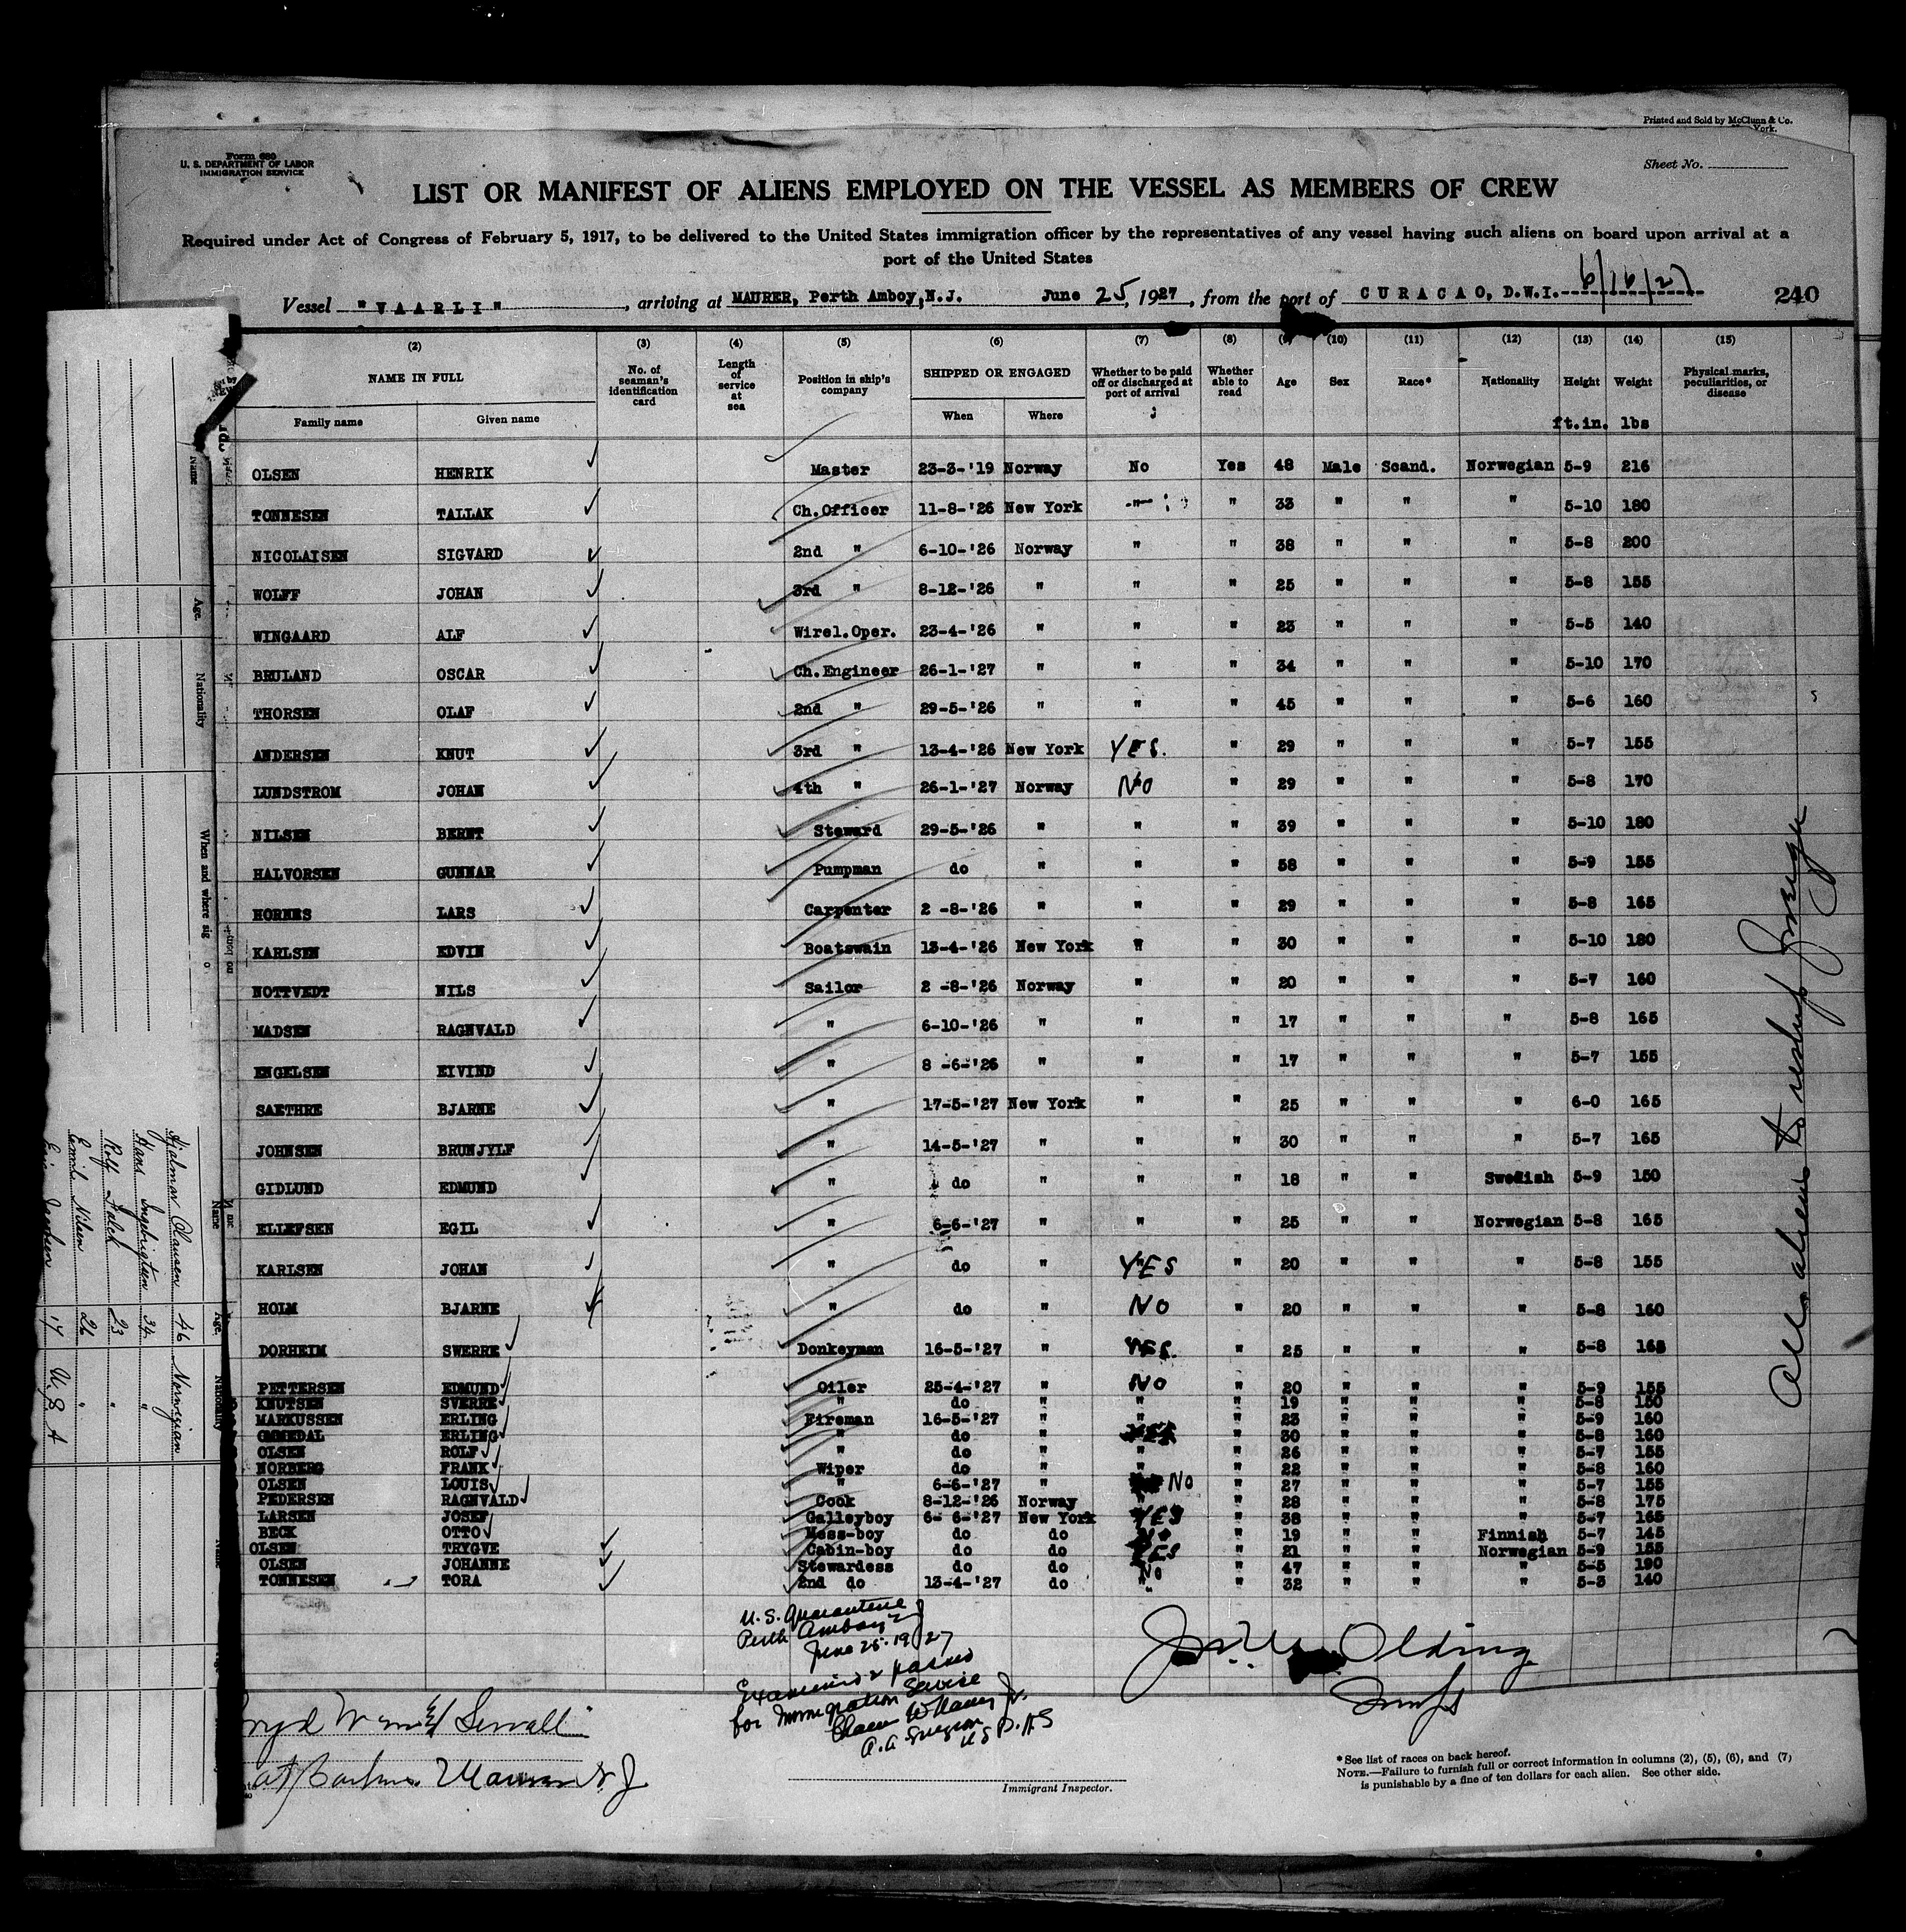 Printed and Sold by McClunn & Co.
York.
Form 680
U. S. DEPARTMENT OF LABOR
IMMIGRATION SERVICE
Sheet No.
LIST OR MANIFEST OF ALIENS EMPLOYED ON THE VESSEL AS MEMBERS OF CREW
Required under Act of Congress of February 5, 1917, to be delivered to the United States immigration officer by the representatives of any vessel having such aliens on board upon arrival at a
port of the United States
6/16/27
Vessel "VAARLI", arriving at MAURER, Perth Amboy, N.J. June 25, 1927, from the port of CURACAO, D.W.I. 240
(2) (3) (4) (5) (6) (7) (8) (9) (10) (11) (12) (13) (14) (15)
NAME IN FULL No. of seaman's identification card Length of service at sea Position in ship's company SHIPPED OR ENGAGED Whether to be paid off or discharged at port of arrival Whether able to read Age Sex Race* Nationality Height Weight Physical marks, peculiarities, or disease
Family name Given name When Where ft.in. lbs
OLSEN HENRIK Master 23-3-'19 Norway No Yes 48 Male Scand. Norwegian 5-9 216
TONNESEN TALLAK Ch.Officer 11-8-'26 New York " " 33 " " " 5-10 180
NICOLAISEN SIGVARD 2nd " 6-10-'26 Norway " " 38 " " " 5-8 200
WOLFF JOHAN 3rd " 8-12-'26 " " " 25 " " " 5-8 155
WINGAARD ALF Wirel.Oper. 23-4-'26 " " " 23 " " " 5-5 140
BRULAND OSCAR Ch.Engineer 26-1-'27 " " " 34 " " " 5-10 170
THORSEN OLAF 2nd " 29-5-'26 " " " 45 " " " 5-6 160
ANDERSEN KNUT 3rd " 13-4-'26 New York YES. " 29 " " " 5-7 155
LUNDSTROM JOHAN 4th " 26-1-'27 Norway NO " 29 " " " 5-8 170
NILSEN BERNT Steward 29-5-'26 " " " 39 " " " 5-10 180
HALVORSEN GUNNAR Pumpman do " " " 58 " " " 5-9 155
HORNES LARS Carpenter 2 -8-'26 " " " 29 " " " 5-8 165
KARLSEN EDVIN Boatswain 13-4-'26 New York " " 30 " " " 5-10 180
NOTTVEDT NILS Sailor 2 -8-'26 Norway " " 20 " " " 5-7 160
MADSEN RAGNVALD " 6-10-'26 " " " 17 " " " 5-8 165
ENGELSEN EIVIND " 8 -6-'26 " " " 17 " " " 5-7 155
SAETHRE BJARNE " 17-5-'27 New York " " 25 " " " 6-0 165
JOHNSEN BRUNJYLF " 14-5-'27 " " " 30 " " " 5-7 165
GIDLUND EDMUND " do " " " 18 " " Swedish 5-9 150
ELLEFSEN EGIL " 6-6-'27 " " " 25 " " Norwegian 5-8 165
KARLSEN JOHAN " do " YES " 20 " " " 5-8 155
HOLM BJARNE " do " NO " 20 " " " 5-8 160
DORHEIM SWERRE Donkeyman 16-5-'27 " YES " 25 " " " 5-8 165
PETTERSEN EDMUND Oiler 25-4-'27 " NO " 20 " " " 5-9 155
KNUTSEN SVERRE " do " " " 19 " " " 5-8 150
MARKUSSEN ERLING Fireman 16-5-'27 " " " 23 " " " 5-9 160
ERLING " do " YES " 30 " " " 5-8 160
OLSEN ROLF " do " " " 26 " " " 5-7 155
NORBERG FRANK Wiper do " " " 22 " " " 5-8 160
OLSEN LOUIS " 6-6-'27 " NO " 27 " " " 5-7 155
PEDERSEN RAGNVALD Cook 8-12-'26 Norway " " 28 " " " 5-8 175
LARSEN JOSEF Galleyboy 6-6-'27 New York YES " 38 " " " 5-7 165
BECK OTTO Mess-boy do do No " 19 " " Finnish 5-7 145
OLSEN TRYGVE Cabin-boy do do YES " 21 " " Norwegian 5-9 155
OLSEN JOHANNE Stewardess do do No " 47 " " " 5-5 190
TONNESEN TORA 2nd do 13-4-'27 do " " 32 " " " 5-3 140
All aliens to reship foreign
U.S. Quarantine
Perth Amboy
June 25-1927
Examined & passed
for Immigration Service
A.A Surgeon
U S P.H S
Olding
Insp
Maurer N.J
Immigrant Inspector.
*See list of races on back hereof.
NOTE.—Failure to furnish full or correct information in columns (2), (5), (6), and (7)
is punishable by a fine of ten dollars for each alien. See other side.
Name Age. Nationality When and where
Name Age Nationality
Hjalmar Clausen 46 Norwegian
Hans Ingebrigtsen 34 "
Rolf Falck 23 "
Emil Nilsen 26 "
17 U S A